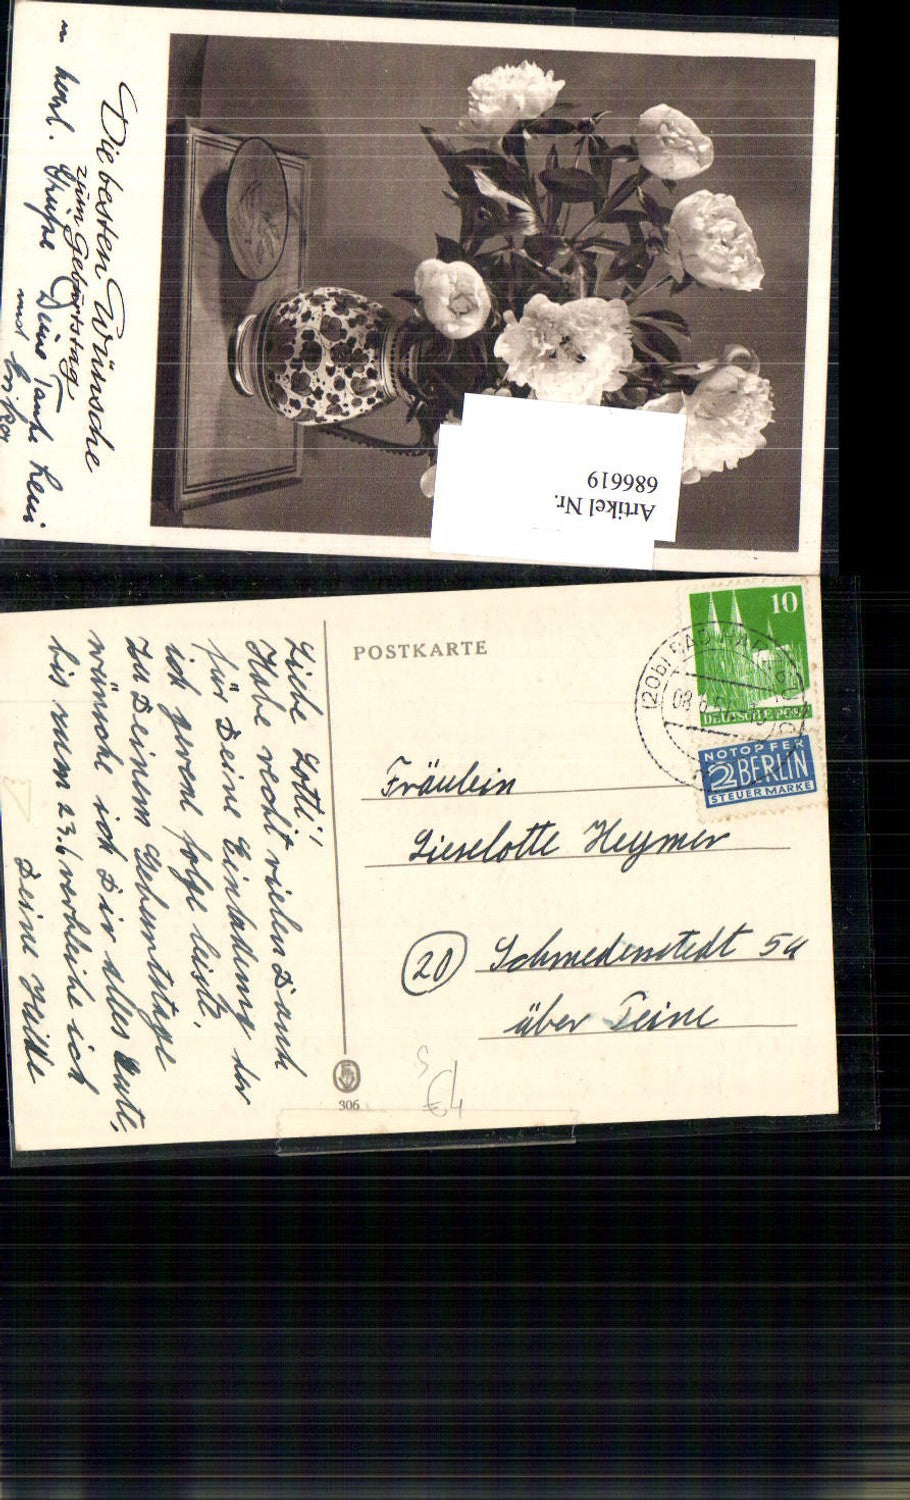 Die besten Wünsche
zum Geburtstag
u. herzl. Grüße Deine Tante Leni
und
Artikel Nr.
686619
POSTKARTE
10
DEUTSCHE POST
NOTOPFER
2 BERLIN
STEUERMARKE
(20b) BAD HA
Fräulein
Lieselotte Heymer
(20) Schmedenstedt 5a
über Peine
306
Liebe Lotti!
Habe recht vielen Dank
für Deine Einladung der
ich gerne folge leiste.
Zu Deinem Geburtstage
wünsche ich Dir alles Gute,
bis zum 23.6 verbleibe ich
Deine